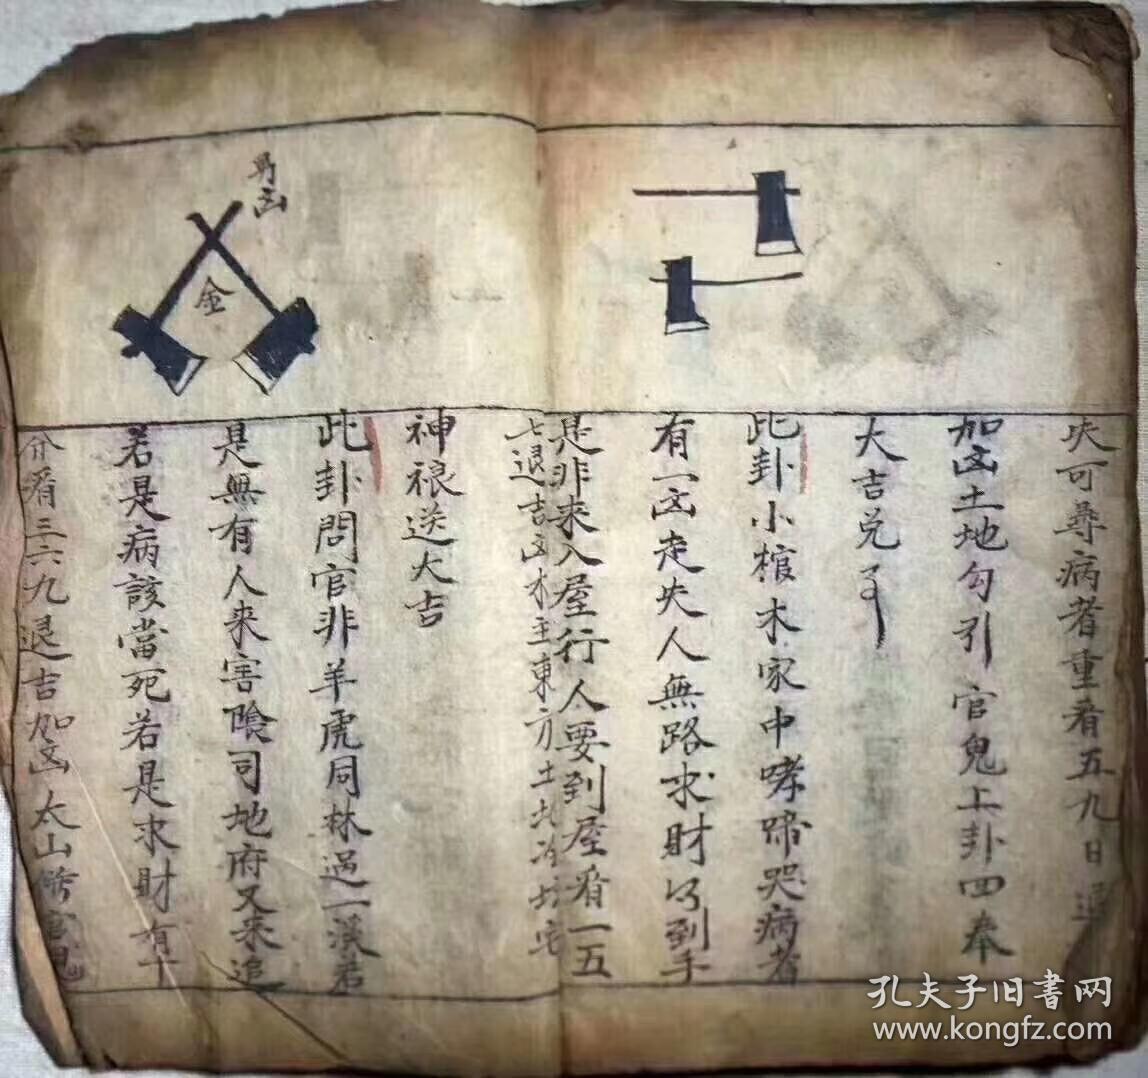 失可尋病者重看五九日退
加凶土地勾引官鬼上卦四奉
大吉兑子
此卦小棺木家中哮啼哭病者
有一凶走失人無路求財以到手
是非来入屋行人要到屋看一五
七退吉凶木主東方土
神禓送大吉
男凶
金
此卦問官非羊虎同林過一溪若
是無有人来害陰司地府又来追
若是病該當死若是求財有十
分看三六九退吉加凶太山
孔夫子旧書网
www.kongfz.com